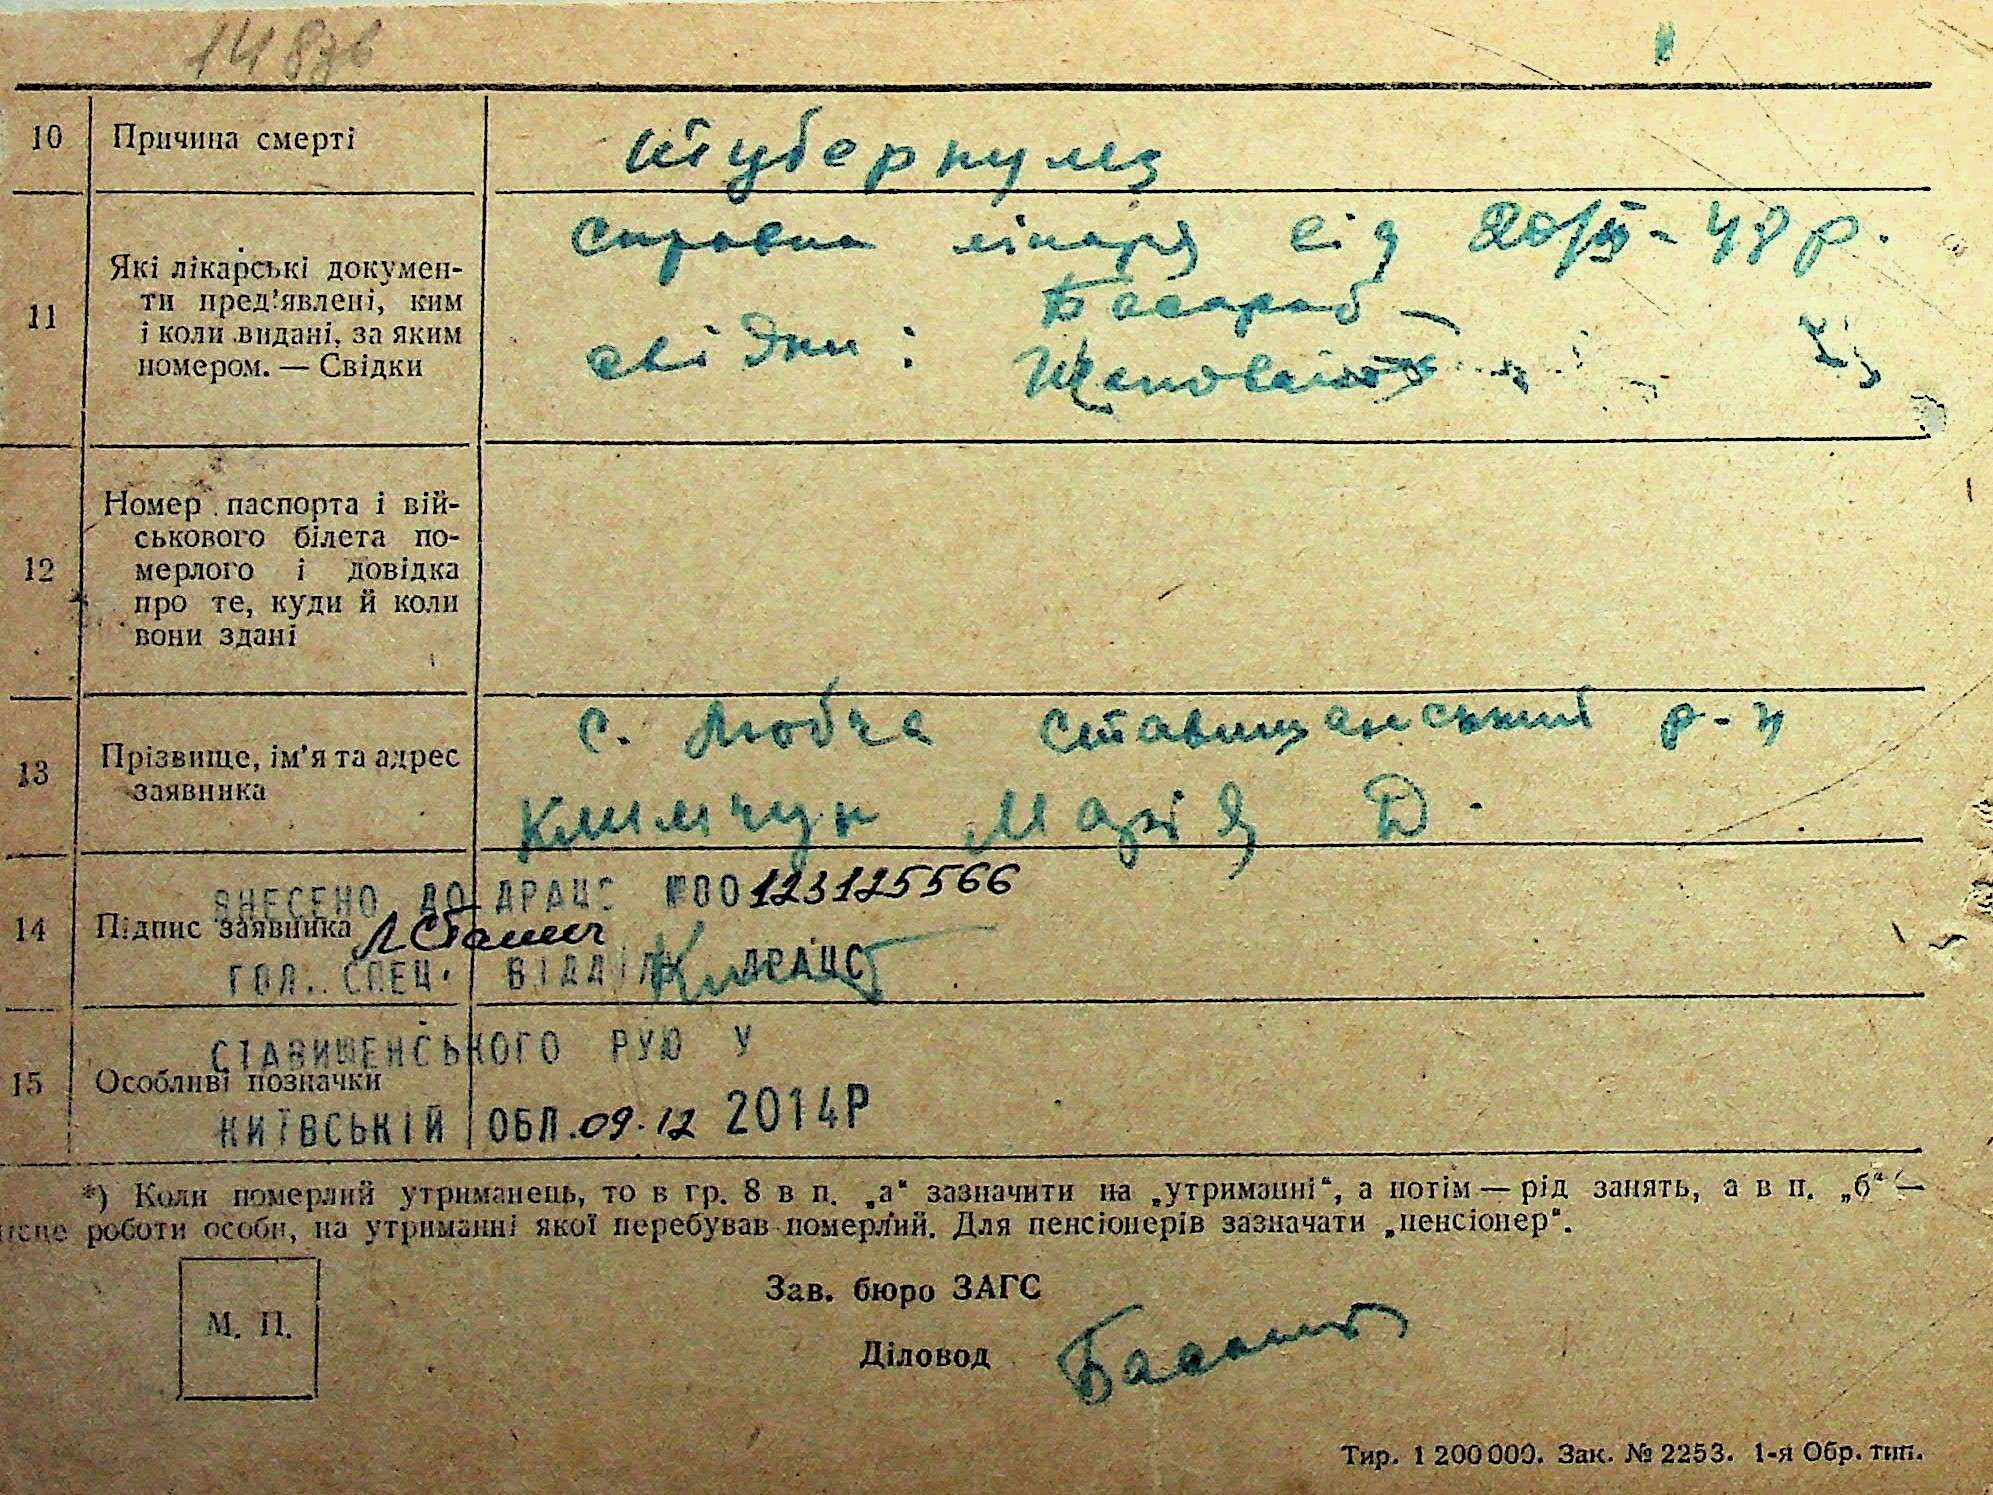 148зв
10 Причина смерті Туберкульоз
11 Які лікарські докумен-
ти пред'явлені, ким
і коли видані, за яким
номером. — Свідки
справка лікаря від 48 р.
свідки:
12 Номер паспорта і вій-
ськового білета по-
мерлого і довідка
про те, куди й коли
вони здані
13 Прізвище, ім'я та адрес
заявника
с. Любча Ставищанський р-н
Климчук Марія Д.
ВНЕСЕНО ДО ДРАЦС №00123125566
14 Підпис заявника
ГОЛ. СПЕЦ. ВІДДІЛУ ДРАЦС
СТАВИЩЕНСЬКОГО РУЮ У
15 Особливі позначки
КИЇВСЬКІЙ ОБЛ. 09.12 2014Р
*) Коли померлий утриманець, то в гр. 8 в п. „а“ зазначити на „утриманні“, а потім — рід занять, а в п. „б“ —
місце роботи особи, на утриманні якої перебував померлий. Для пенсіонерів зазначати „пенсіонер“.
М. П.
Зав. бюро ЗАГС
Діловод
Тир. 1 200 000. Зак. № 2253. 1-я Обр. тип.